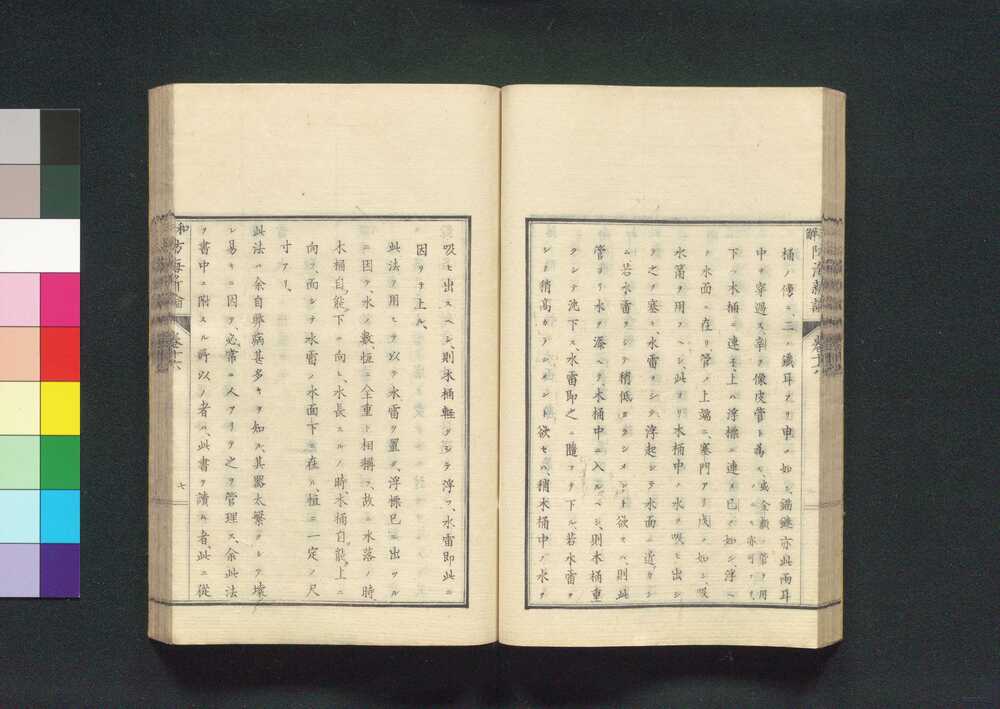 桶ノ傍ニ、二ノ鐵耳アリ申ノ如シ、錨鏈亦此兩耳
中ヲ穿過ス、辛ヲ像皮管ト為ス、
下ハ木桶ニ連子上ハ浮標ニ連ヌ巳ノ如シ、浮ヘ
テ水面ニ在リ、管ノ上端ニ塞門アリ戊ノ如シ、吸
水筩ヲ用フヘシ、此ヨリ木桶中ノ水ヲ吸ヒ出シ
テ之ヲ塞ヒ、水雷ヲシテ浮起シテ水面ニ近カラシ
ム若水雷ヲシテ稍低カラシメント欲セハ、則此
管ヨリ水ヲ添ヘテ、木桶中ニ入ルベシ、則木桶重
クシテ沈下ス、水雷即之ニ隨フテ下ル、若水雷ヲ
シテ稍高カラシメント欲セハ、稍木桶中ノ水ヲ
吸ヒ出スヘシ、則木桶輕クシテ浮フ、水雷即此ニ
因リテ上ル、
此法ヲ用ヒテ以テ水雷ヲ置ク、浮標已ニ出ツル
ニ因テ、水ノ數、恒ニ全重ト相稱フ、故ニ水落ノ時、
木桶自能下ニ向ヒ、水長スルノ時、木桶自能上ニ
向フ、而シテ水雷ノ水面下ニ在ル、恒ニ一定ノ尺
寸アリ、
此法ハ余自弊病甚多キヲ如ル、其器太繁クシテ壞
レ易キニ因テ、必常ニ人アリテ之ヲ管理ス、余此法
ヲ書中ニ附スル所以ノ者ハ、此書ヲ讀ム者、此ニ從
七